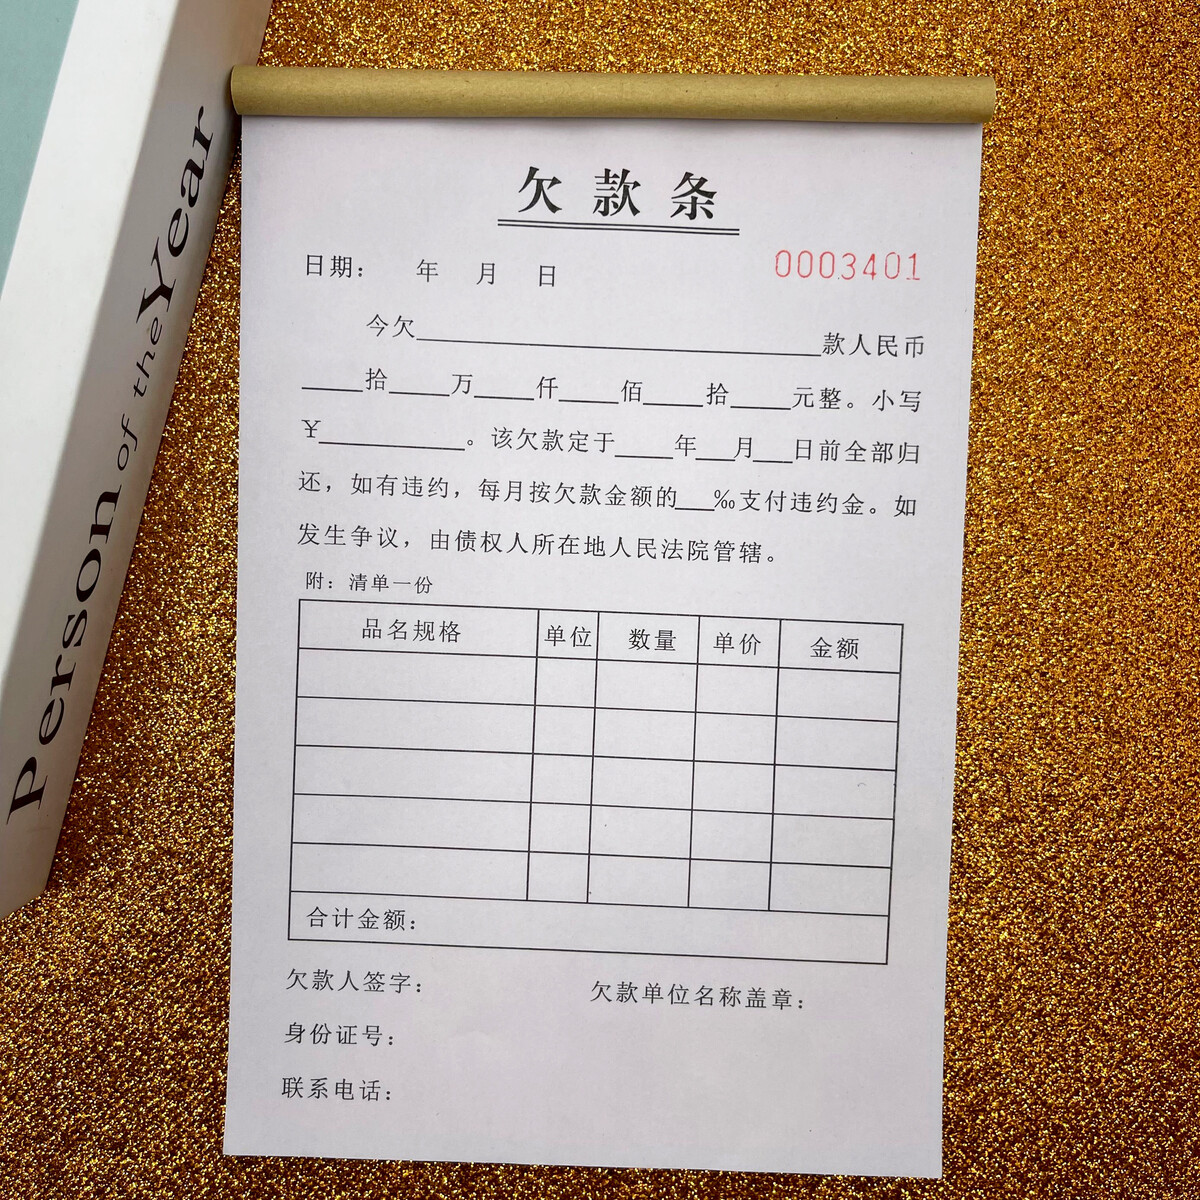 Person of the Year
欠款条
日期： 年 月 日 0003401
今欠____________________款人民币
____拾____万____仟____佰____拾____元整。小写
¥__________。该欠款定于____年__月__日前全部归
还，如有违约，每月按欠款金额的__‰支付违约金。如
发生争议，由债权人所在地人民法院管辖。
附：清单一份
品名规格 单位 数量 单价 金额
合计金额：
欠款人签字： 欠款单位名称盖章：
身份证号：
联系电话：